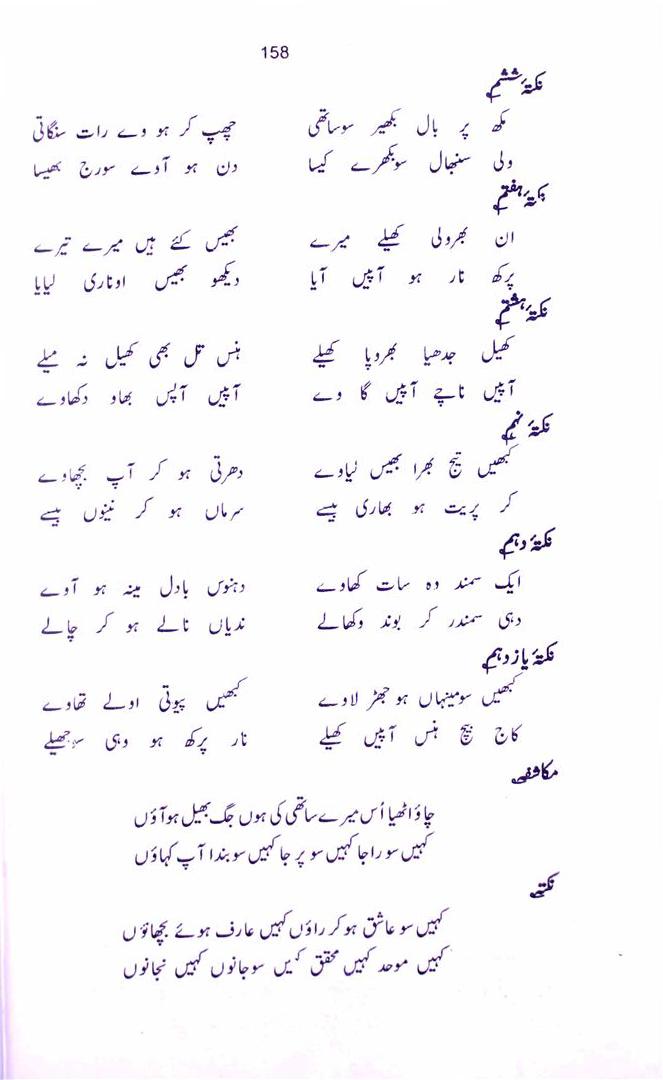 158
نکتۂ ششم
مکھ پر بال بکھیر سوساتھی چھپ کر ہو وے رات سنگاتی
ولی سنبھال سوبکھرے کیسا دن ہو آوے سورج بھیسا
نکتۂ ہفتم
ان بھرولی کھیلے میرے بھیس کئے ہیں میرے تیرے
پرکھ نار ہو آپیں آیا دیکھو بھیس اوناری لیایا
نکتۂ ہشتم
کھیل جدھیا بھروپا کھیلے ہنس تل بھی کھیل نہ میلے
آپیں ناچے آپیں گا وے آپیں آپس بھاو دکھاوے
نکتۂ نہم
کبھیں تیج بھرا بھیس لیاوے دھرتی ہو کر آپ بچھاوے
کر پربت ہو بھاری بیسے سرماں ہو کر نینوں بیسے
نکتۂ دہم
ایک سمند وہ سات کھاوے دہنوس بادل مینہ ہو آوے
دہی سمندر کر بوند وکھالے ندیاں نالے ہو کر چالے
نکتۂ یازدہم
کبھیں سومینہاں ہو جھڑ لاوے کبھیں پیوتی اولے تھاوے
کاج بیچ ہنس آپیں کھیلے نار پرکھ ہو وہی سوجھیلے
مکاشفی
چاؤ اٹھیا اُس میرے ساتھی کی ہوں جگ بھیل ہو آؤں
کہیں سو راجا کہیں سو پر جا کہیں سو بندا آپ کہاؤں
نکتی
کہیں سو عاشق ہو کر راؤں کہیں عارف ہوئے بچھانوں
کہیں موحد کہیں محقق کہیں سو جانوں کہیں نجانوں